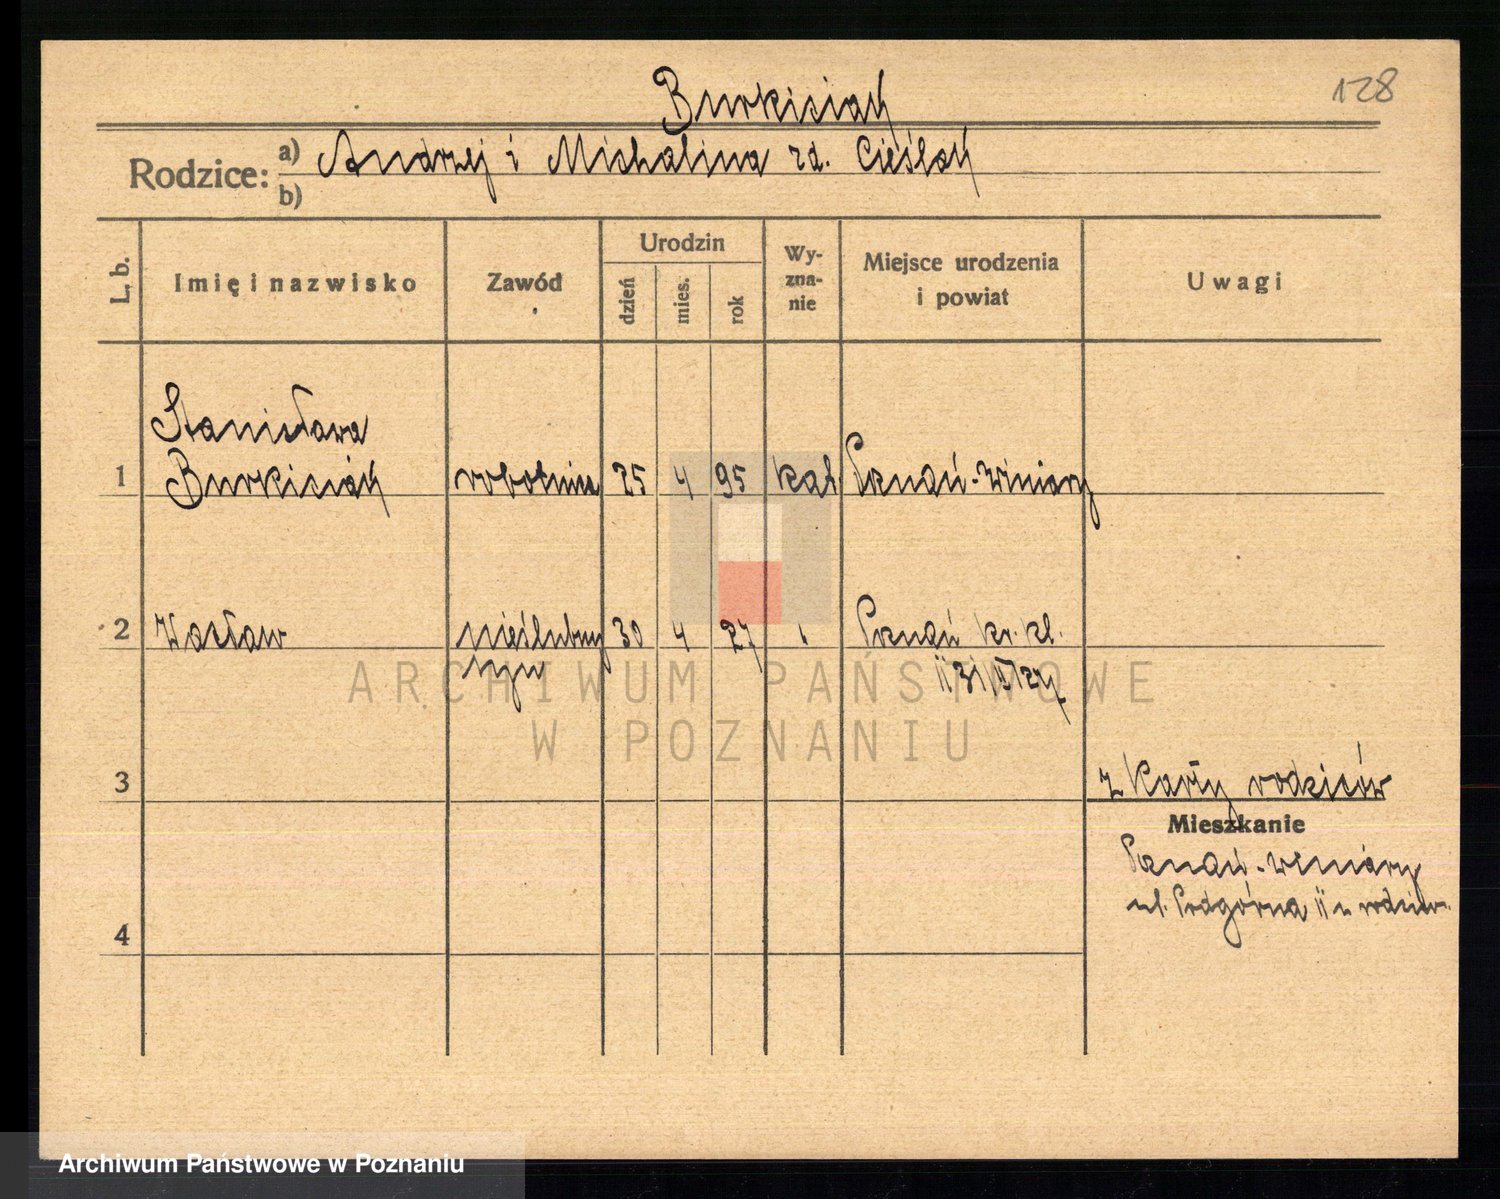 128
Burkiciak
Rodzice: a) Andrzej i Michalina zd. Cieślak
b)
L. b. Imię i nazwisko Zawód Urodzin dzień mies. rok Wyznanie Miejsce urodzenia i powiat Uwagi
Stanisława
1 Burkiciak robotnica 25 4 95 kat Poznań-Winiary
2 Wacław nieślubny 30 4 27 Poznań kr. kl.
syn 11
3 z Karty rodziców
Mieszkanie
Poznań-Winiary
ul. Podgórna 11 u
4
ARCHIWUM PAŃSTWOWE
W POZNANIU
Archiwum Państwowe w Poznaniu